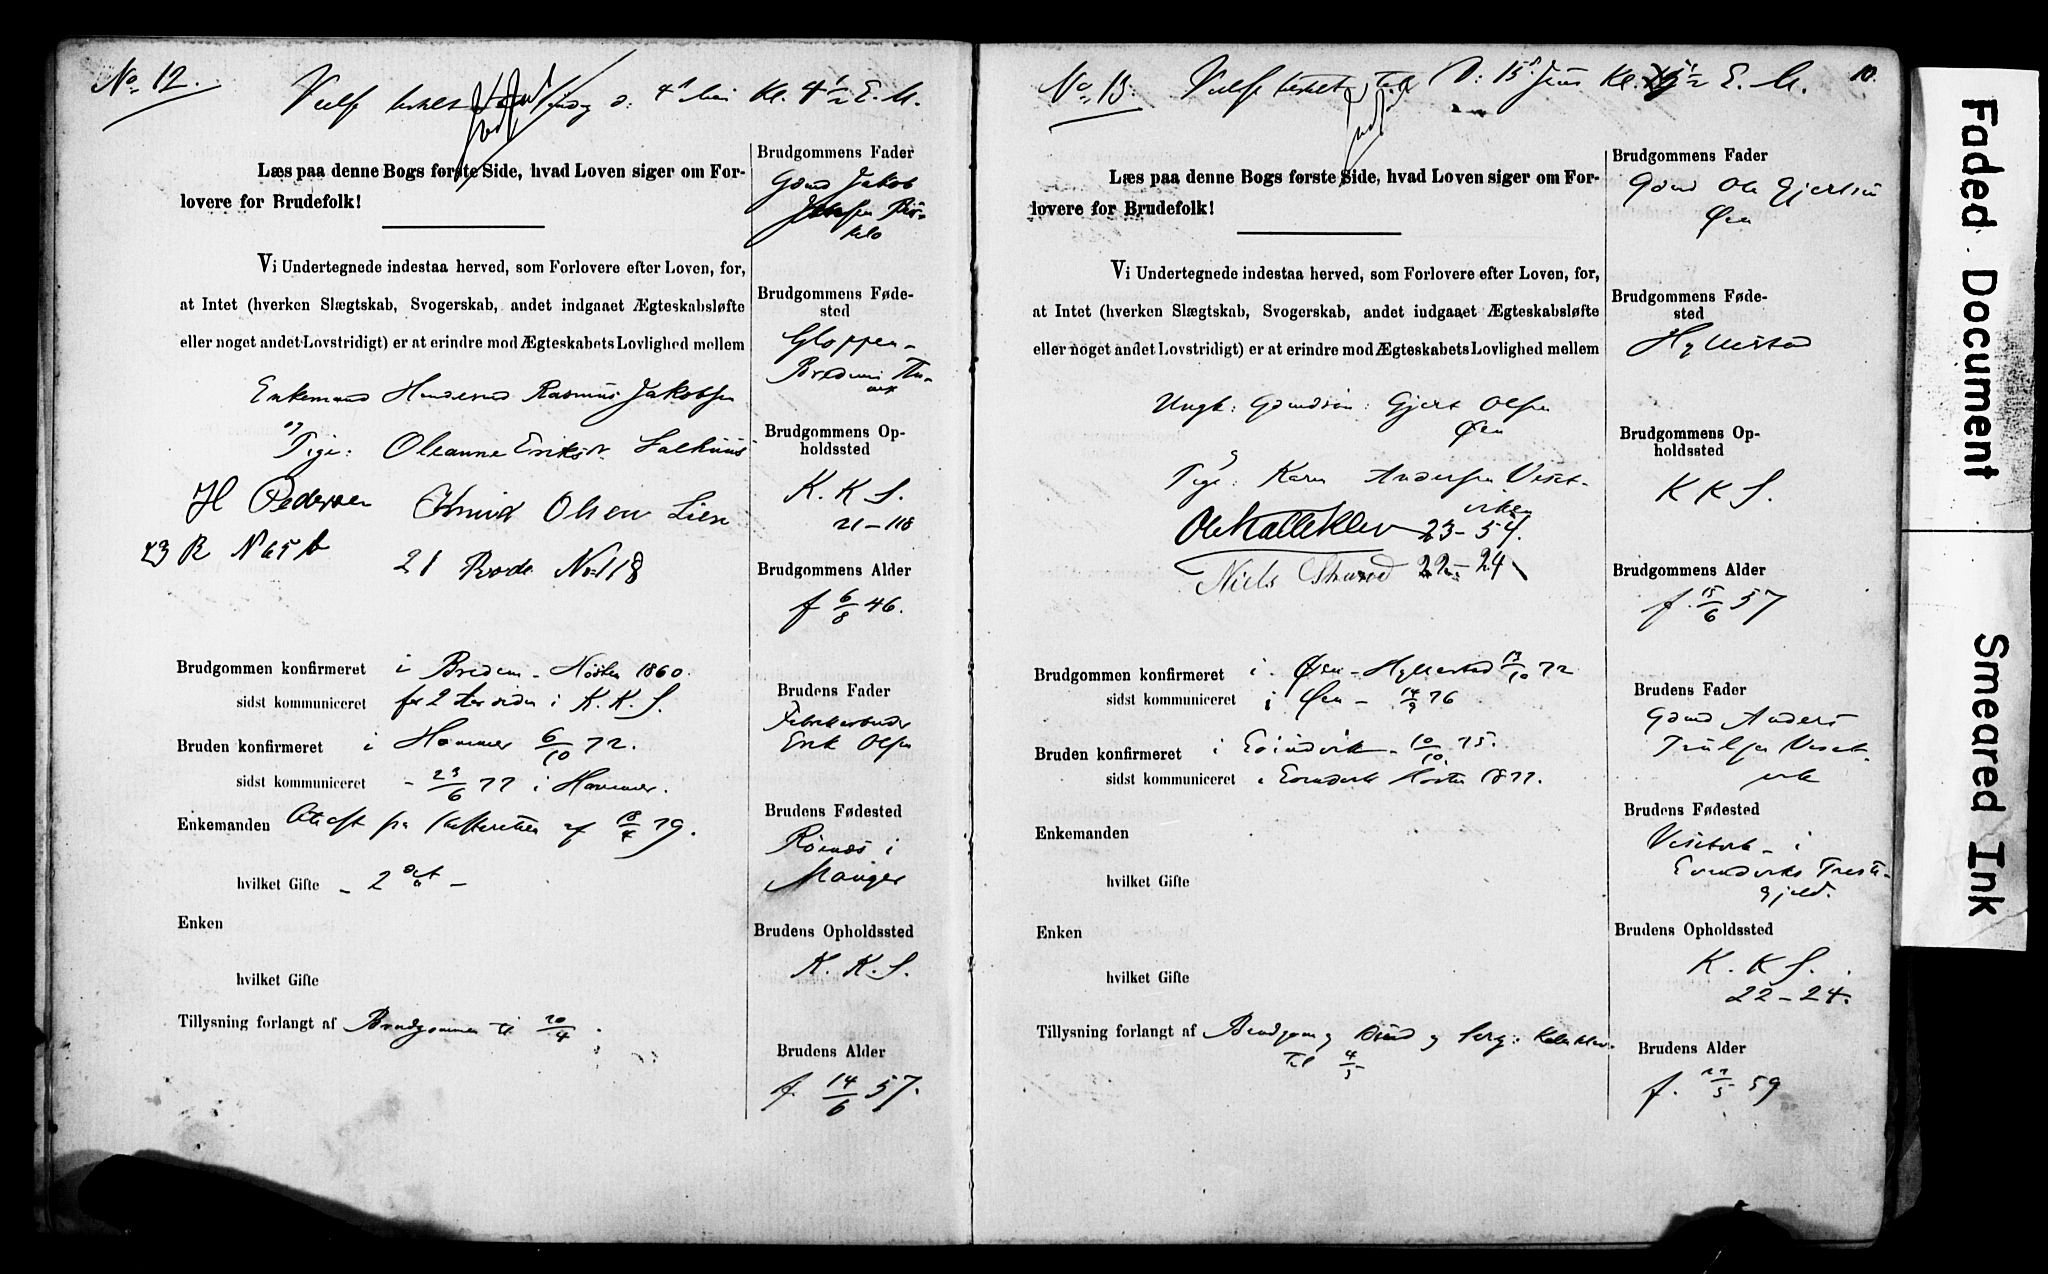 No 12.
d: 4de Kl. 4 1/2 E. M.
Læs paa denne Bogs første Side, hvad Loven siger om For-
lovere for Brudefolk!
Vi Undertegnede indestaa herved, som Forlovere efter Loven, for,
at Intet (hverken Slægtskab, Svogerskab, andet indgaaet Ægteskabsløfte
eller noget andet Lovstridigt) er at erindre mod Ægteskabets Lovlighed mellem
Enkemand Rasmus Jakobsen
og
Pige: Oleanne Eriksd. Salhuus
H Pedersen Knud Olsen Lien
23 R No 65 b 21 Rode No 118
Brudgommen konfirmeret i Bredem - Høsten 1860.
sidst kommuniceret for 2 Aar siden i K. K. S.
Bruden konfirmeret i Hammer 6/10 72.
sidst kommuniceret - 23/6 77 i Hammer.
Enkemanden Attest fra Skifteretten af 18/4 79.
hvilket Gifte - 2det -
Enken
hvilket Gifte
Tillysning forlangt af Brudgommen til 20/4
Brudgommens Fader
Gmd Jakob
BrudgommensFøde-
sted
Gloppen -
Bredem
Brudgommens Op-
holdssted
K. K. S.
21 - 118
Brudgommens Alder
f 6/8 46.
Brudens Fader
Fabrikarbeider
Erik Olsen
Brudens Fødested
i
Manger
Brudens Opholdssted
K. K. S.
Brudens Alder
f. 14/6 57.
No 13. D: 15de Juni Kl. 5 1/2 E. M. 10.
Læs paa denne Bogs første Side, hvad Loven siger om For-
lovere for Brudefolk!
Vi Undertegnede indestaa herved, som Forlovere efter Loven, for,
at Intet (hverken Slægtskab, Svogerskab, andet indgaaet Ægteskabsløfte
eller noget andet Lovstridigt) er at erindre mod Ægteskabets Lovlighed mellem
Ungk: Gmdsøn: Gjert Olsen
Øen
og
Pige: Karen Andersen Viset-
viken
Ole Kalleklev 23 - 54.
Niels Strand 22 - 24
Brudgommen konfirmeret i Øen - Hyllestad 13/10 72
sidst kommuniceret i Øen - 14/9 76
Bruden konfirmeret i Evindvik - 10/10 75.
sidst kommuniceret i Evindvik Høsten 1877.
Enkemanden
hvilket Gifte
Enken
hvilket Gifte
Tillysning forlangt af Brudgom og Brud og Kalleklev
til 4/5
Brudgommens Fader
Gmd Ole Gjertsen
Øen
Brudgommens Føde-
sted
Hyllestad
Brudgommens Op-
holdssted
K K S.
Brudgommens Alder
f. 15/6 57
Brudens Fader
Gmd Anders
Trulsen Viset-
vik
Brudens Fødested
Visetvik - i
Evindviks Præste-
gjeld.
Brudens Opholdssted
K. K S.
22 - 24.
Brudens Alder
f. 22/5 59
Faded Document
Smeared Ink